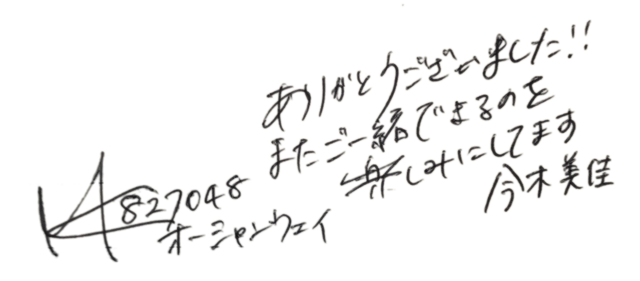 ありがとうございました!!
またご一緒できるのを
楽しみにしてます
今木美佳
827048
オーシャンウェイ